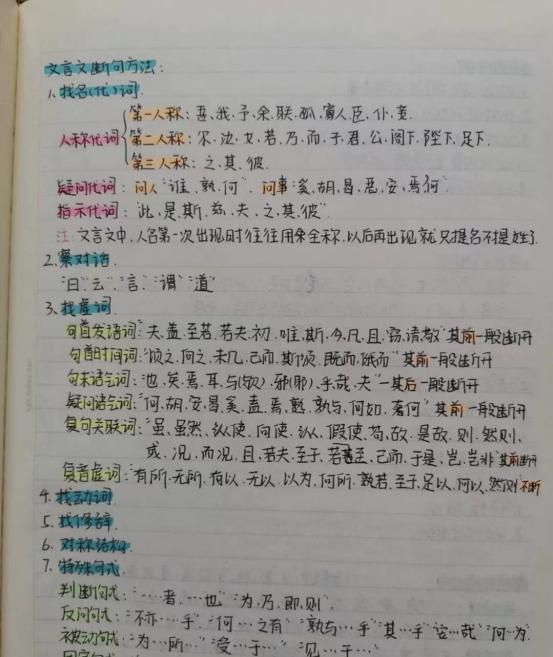 文言文断句方法:
1、找名(代)词.
第一人称:吾、我、予、余、朕、孤、寡人、臣、仆、妾.
人称代词 第二人称:尔、汝、女、若、乃、而、子、君、公、阁下、陛下、足下.
第三人称:之、其、彼.
疑问代词:问人"谁、孰、何" 问事"奚、胡、曷、恶、安、焉、何"
指示代词:"此、是、斯、兹、夫、之、其、彼"
注:文言文中,人名第一次出现时往往用全称,以后再出现就只提名不提姓了.
2.察对话.
"曰""云""言""谓""道"
3、找虚词.
句首发语词:"夫、盖、至若、若夫、初、唯、斯、今、凡、且、窃、请、敬"其前一般断开
句首时间词:"顷之、向之、未几、已而、斯须、既而、俄而"其前一般断开
句末语气词:"也、矣、焉、耳、与(欤)、邪(耶)、乎、哉、夫"其后一般断开
疑问语气词:"何、胡、安、曷、奚、盍、焉、孰、孰与、何如、奈何"其前一般断开
复句关联词:"虽、虽然、纵使、向使、纵、假使、苟、故、是故、则、然则、
或、况、而况、且、若夫、至于、若甚至、已而、于是、岂、岂非"其前断开
复音虚词:"有所、无所、有以、无以、以为、何所、孰若、至于、足以、何以、然则"不断
4.找动词
5、找修辞.
6、对称结构.
7、特殊句式.
判断句式:"……者,……也""为、乃、即、则".
反问句式:"不亦……乎""何……之有""孰与……乎""其……乎""岂…哉""何…为"
被动句式:"为……所…""受……于…""见……于…"